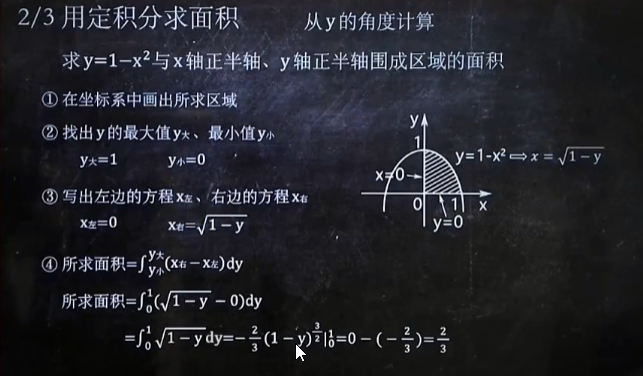 2/3 用定积分求面积 从y的角度计算
求y=1−x²与x轴正半轴、y轴正半轴围成区域的面积
① 在坐标系中画出所求区域
② 找出y的最大值y大、最小值y小
y大=1 y小=0
③ 写出左边的方程x左、右边的方程x右
x左=0 x右=√(1−y)
④ 所求面积=∫y小^y大(x右−x左)dy
所求面积=∫₀¹(√(1−y)−0)dy
=∫₀¹√(1−y)dy=−2/3(1−y)^(3/2)|₀¹=0−(−2/3)=2/3
y
1
y=1-x²⇒x=√(1−y)
x=0
0 1 x
y=0